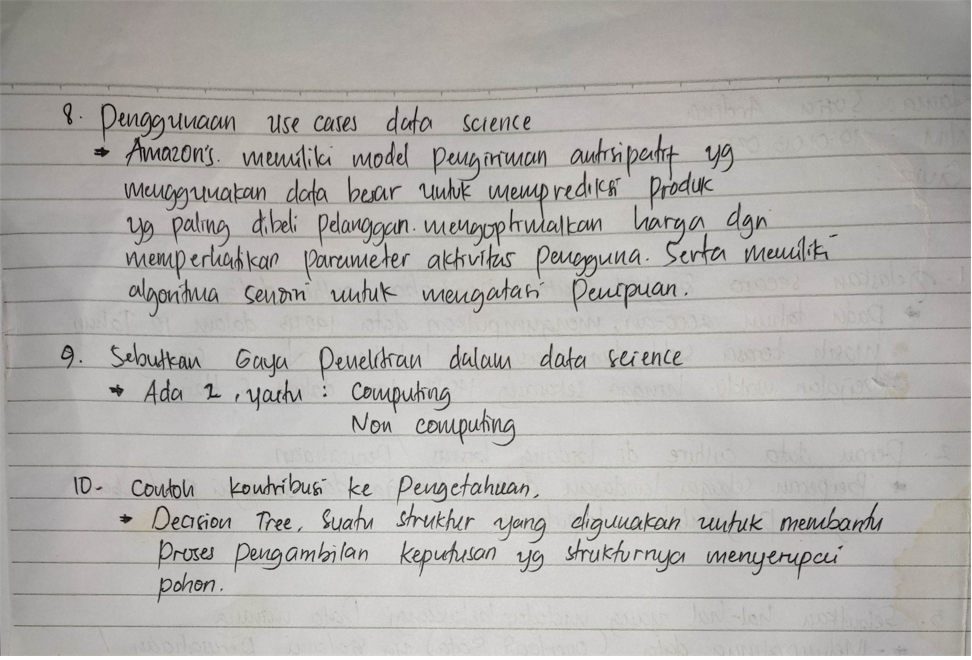 8. Penggunaan use cases data science
→ Amazon's. memiliki model pengiriman antisipatif yg
menggunakan data besar untuk memprediksi produk
yg paling dibeli pelanggan. mengoptimalkan harga dgn
memperhatikan parameter aktivitas pengguna. Serta memiliki
algoritma sendiri untuk mengatasi penipuan.
9. Sebutkan Gaya Penelitian dalam data science
→ Ada 2, yaitu : Computing
Non computing
10. Contoh kontribusi ke Pengetahuan.
→ Decision Tree, Suatu struktur yang digunakan untuk membantu
Proses pengambilan keputusan yg strukturnya menyerupai
pohon.